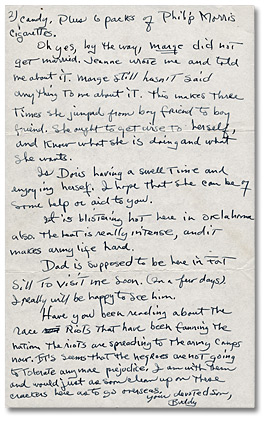 2) candy, Plus 6 packs of Philip Morris
cigarettes.
Oh yes, by the way, marge did not
get married. Jeanne wrote me and told
me about it. Marge still hasn't said
anything to me about it. This makes three
times she jumped from boy friend to boy
friend. She ought to get wise to herself,
and know what she is doing and what
she wants.
Is Doris having a swell time and
enjoying herself. I hope that she can be of
some help or aid to you.
It is blistering hot here in Oklahoma
also. The heat is really intense, and it
makes army life hard.
Dad is supposed to be here in Fort
Sill to visit me soon. (In a few days).
I really will be happy to see him.
Have you been reading about the
race riots that have been fanning the
nation. the riots are spreading to the army camps
now. It's seems that the negroes are not going
to tolerate any more prejudice. I am with them
and would just as soon clean up on those
crackers here as to go overseas.
Your devoted son,